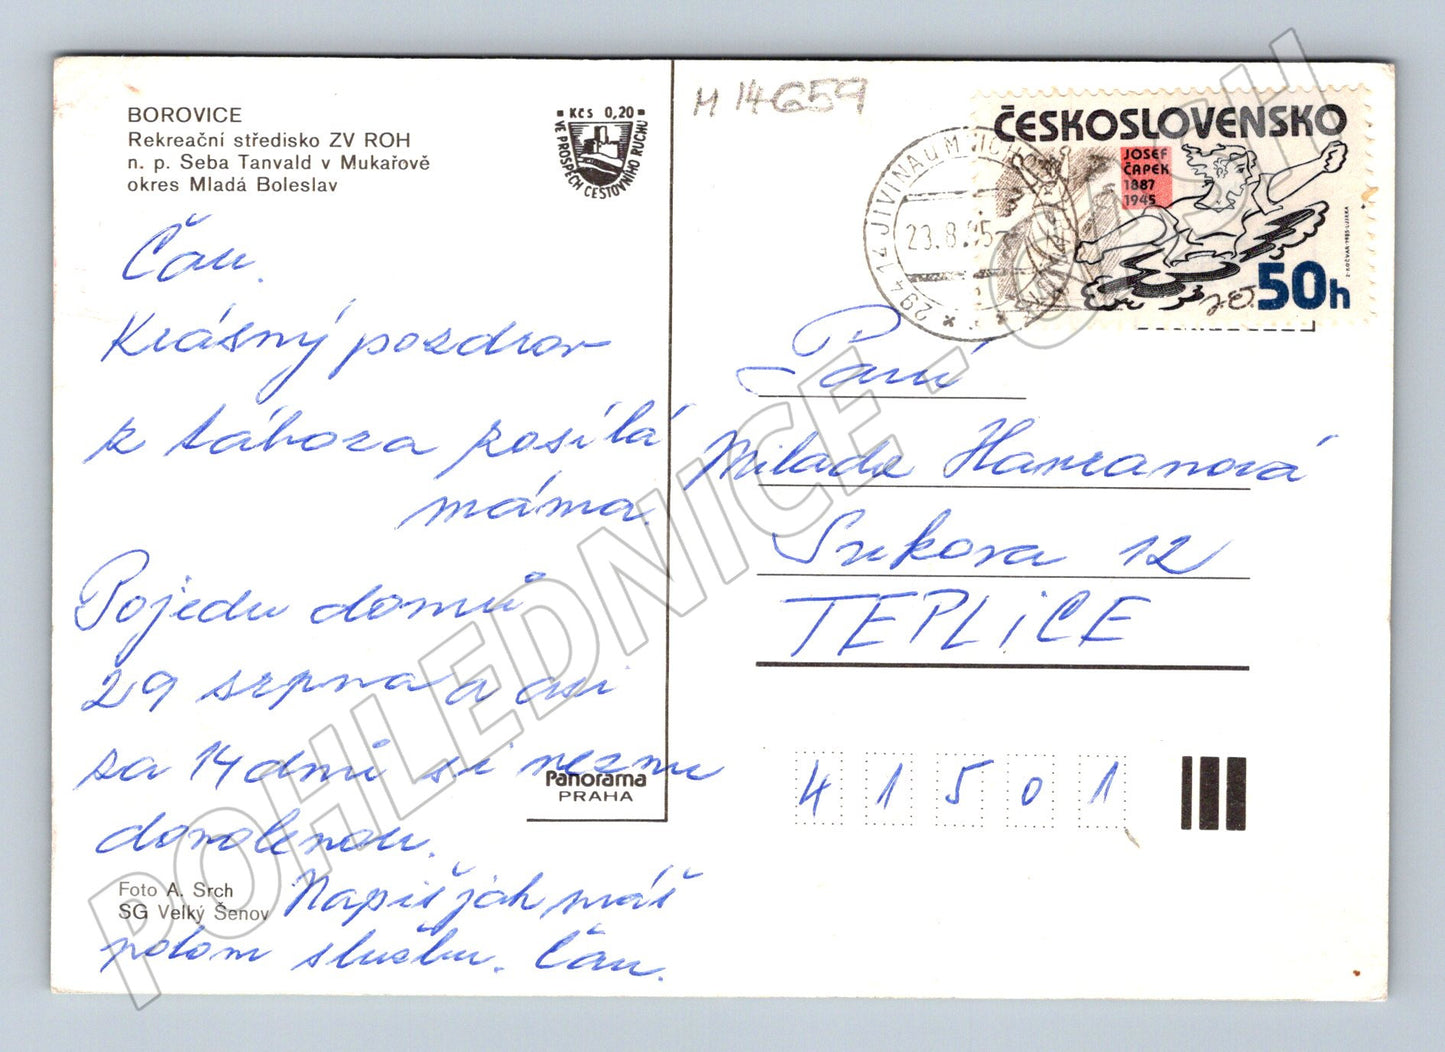 BOROVICE
Rekreační středisko ZV ROH
n. p. Seba Tanvald v Mukařově
okres Mladá Boleslav
Kčs 0,20
VE PROSPĚCH CESTOVNÍHO RUCHU
M 14659
ČESKOSLOVENSKO
JOSEF
ČAPEK
1887
1945
50h
J. KOČVAR·1985·LJIERA
29414 JIVINA U MNICH
23.8.85
Čau.
Krásný pozdrav
z tábora posílá
máma.
Pojedu domů
29 srpna a asi
za 14 dní si vezmu
dovolenou.
Napiš jak máš
potom službu. Čau.
Paní
Milada Havranová
Sukova 12
TEPLiCE
41501
Panorama
PRAHA
Foto A. Srch
SG Velký Šenov
POHLEDNICE - CASH